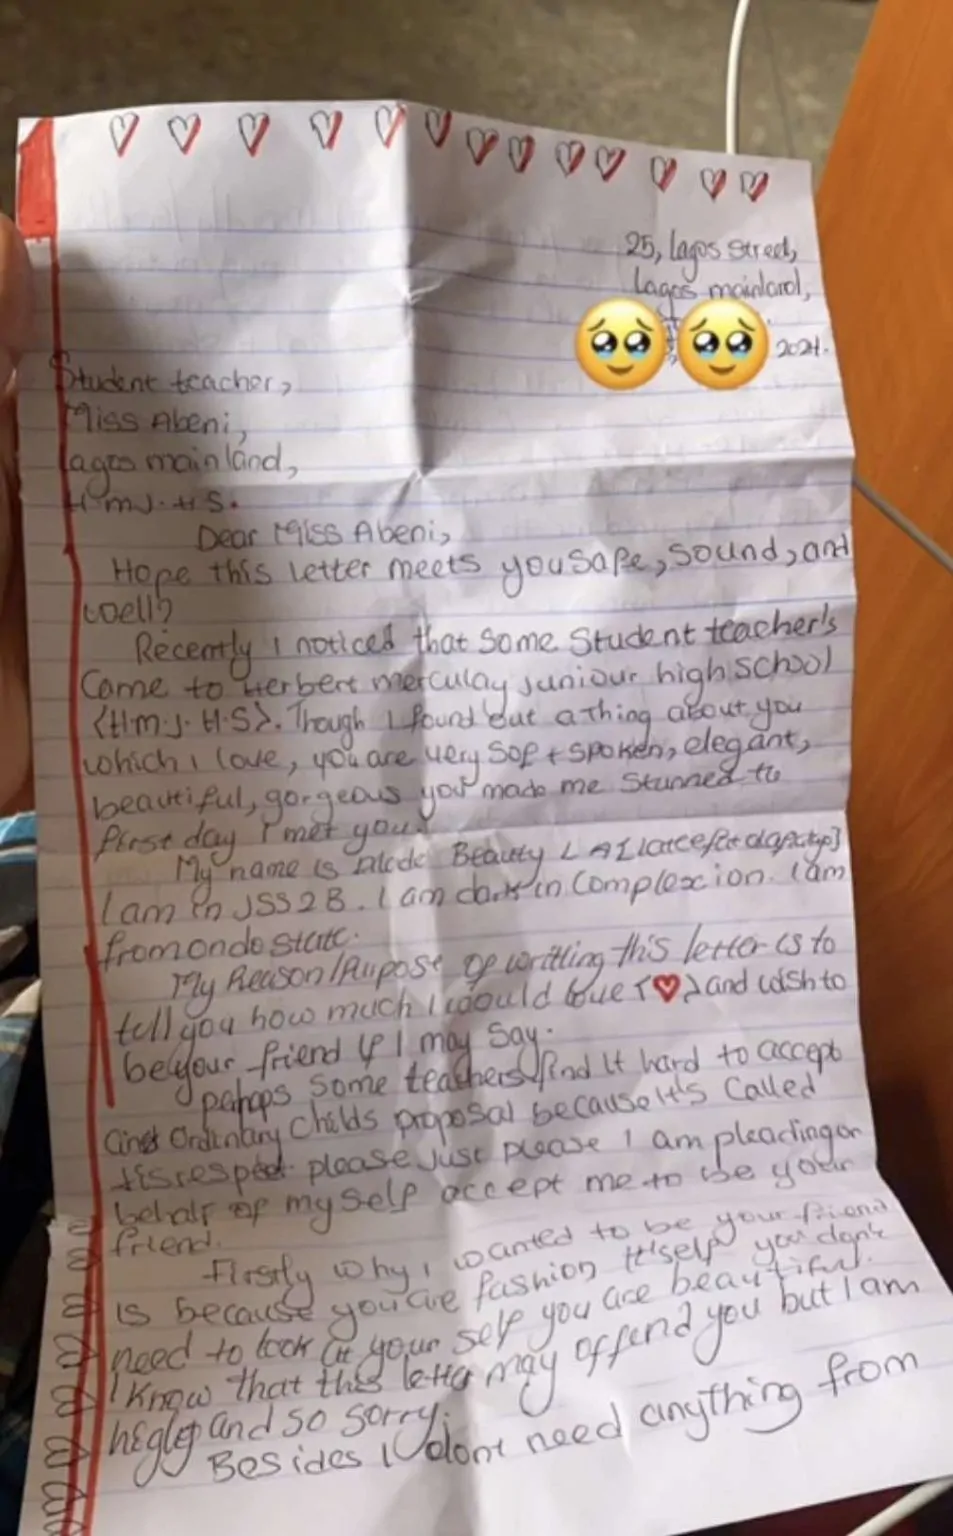 25, lagos street,
Lagos mainland,
2024.
Student teacher,
Miss Abeni,
lagos mainland,
H.m.J.H.S.
Dear Miss Abeni,
Hope this letter meets you safe, sound, and
well?
Recently I noticed that some Student teacher's
Came to Herbert merculay juniour high school
{H.m.J.H.S}. Though I found out a thing about you
which I love, you are very soft spoken, elegant,
beautiful, gorgeous you made me stunned the
first day I met you.
My name is Beauty
I am in JSS2B. I am dark in Complexion. I am
from ondo state.
My Reason/Purpose of writting this letter is to
tell you how much I would love {♥} and wish to
be your friend if I may Say.
pahaps some teachers find it hard to accept
Ordinary childs proposal because it's Called
disrespect please just please I am pleading on
behalf of my self accept me to be your
friend.
Firstly why I wanted to be your friend
is because you are fashion it'self you don't
need to look at your self you are beautiful.
I know that this letter may offend you but I am
and so sorry.
Besides I dont need anything from